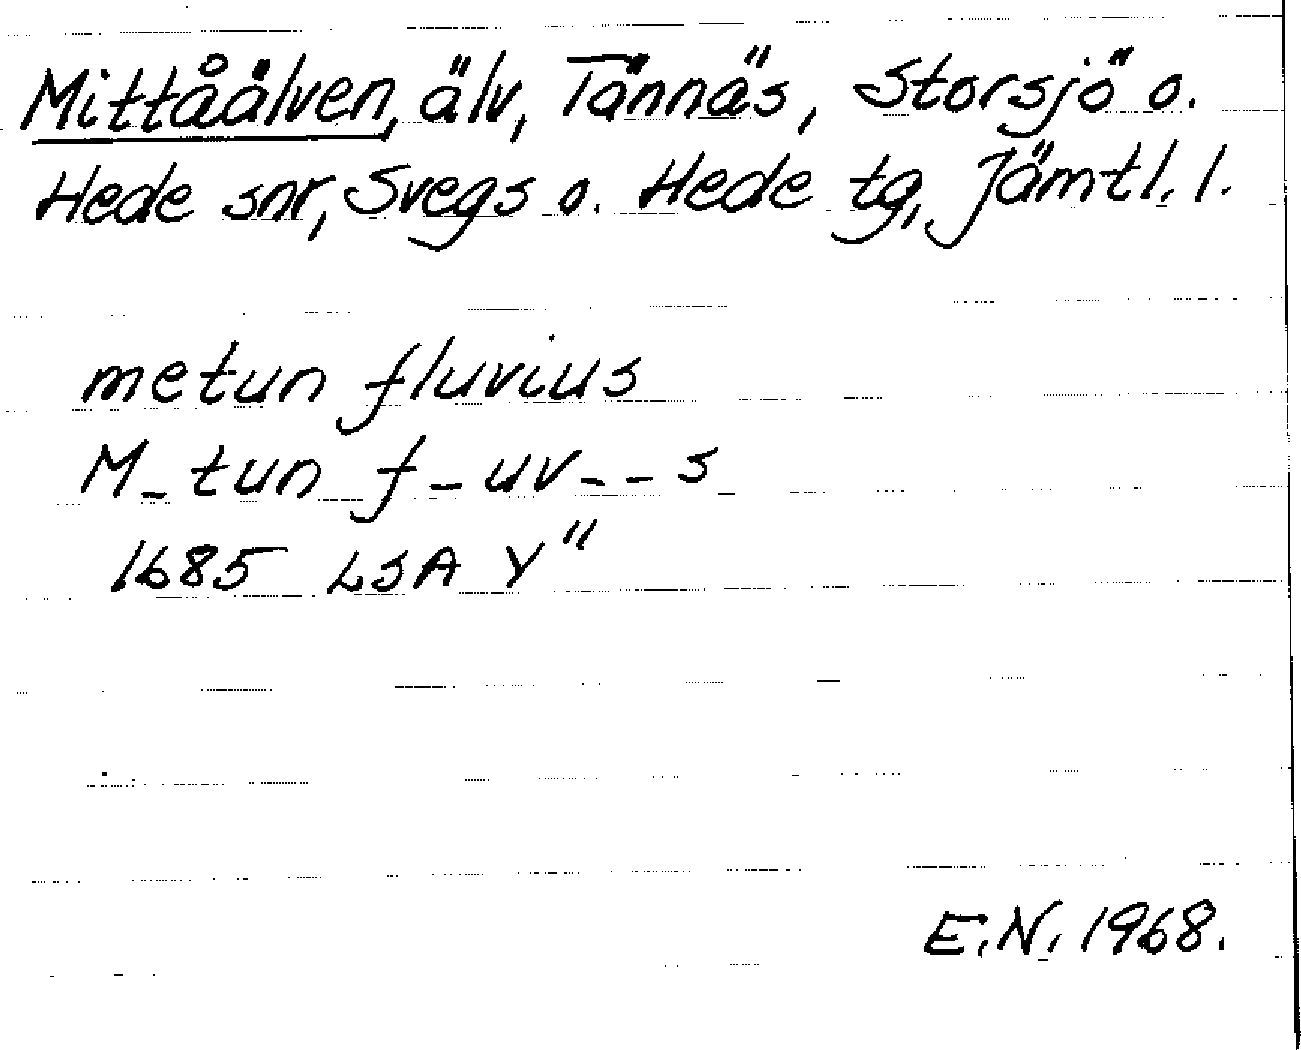 Mittåälven, älv, Tännäs, Storsjö o.
Hede snr, Svegs o. Hede tg, Jämtl. l.
metun fluvius
M_tun f_uv__s
1685 LSA Y"
E.N. 1968.